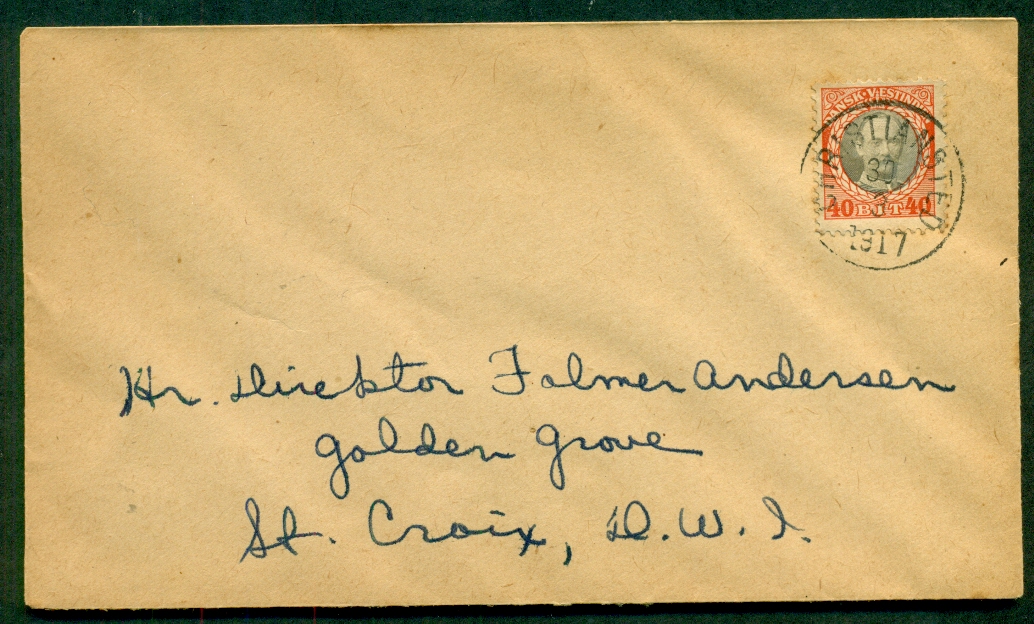 DANSK·VESTINDIEN
40 BIT 40
CHRISTIANSTED
30
3
1917
Hr. Direktor Folmer Andersen
Golden Grove
St. Croix, D. W. I.